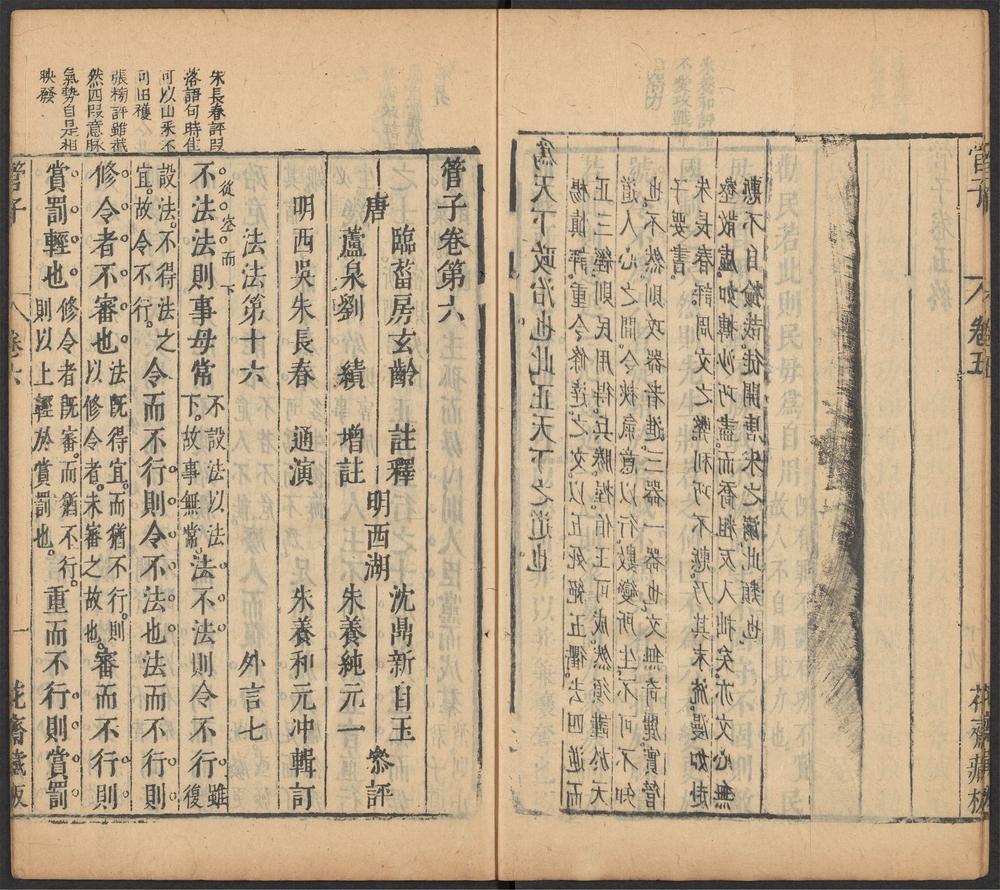 管子
卷五
花齋藏板
爲天下政治也此正天下之道也
楊慎評。重令條達之文。以五死
五衢。去四逆而
正三經則民用得。兵勝
伯王可成。然須謹於天
道人心之間。令挾氣意以行。數變所生。不可不知
也。不然則攻器者進三器一器也。文無奇
實管
子要書。
朱長春評。周文之弊利巧不
乃其末流。漫如赴
壑散虛。如摶沙巧盡。而喬粗反入拙矣。亦文心無
慙不自撿哉。徒開唐宋之
此類也。
朱長春評段
落語句時佳
可以山釆不
可田穫
張榜評雖截
然四段意脉
氣勢自是相
映發
管子卷第六
唐 臨菑房玄齡 註釋
蘆泉劉 績 增註
明西吳朱長春 通演
明西湖
沈鼎新自玉
朱養純元一 叅評
朱養和元冲輯訂
法法第十六 外言七
從空而下
不法法則事毋常 不設法以法下。故事無常。 法不法則令不行 雖復
設法。不得法之宜。故令不行。 令而不行則令不法也法而不行則
修令者不審也 法既得宜。而猶不行。則以修令者。未審之故也。 審而不行則
賞罰輕也 修令者既審。而猶不行。則以上輕於賞罰也。 重而不行則賞罰
管子
卷六
一
花齋藏板